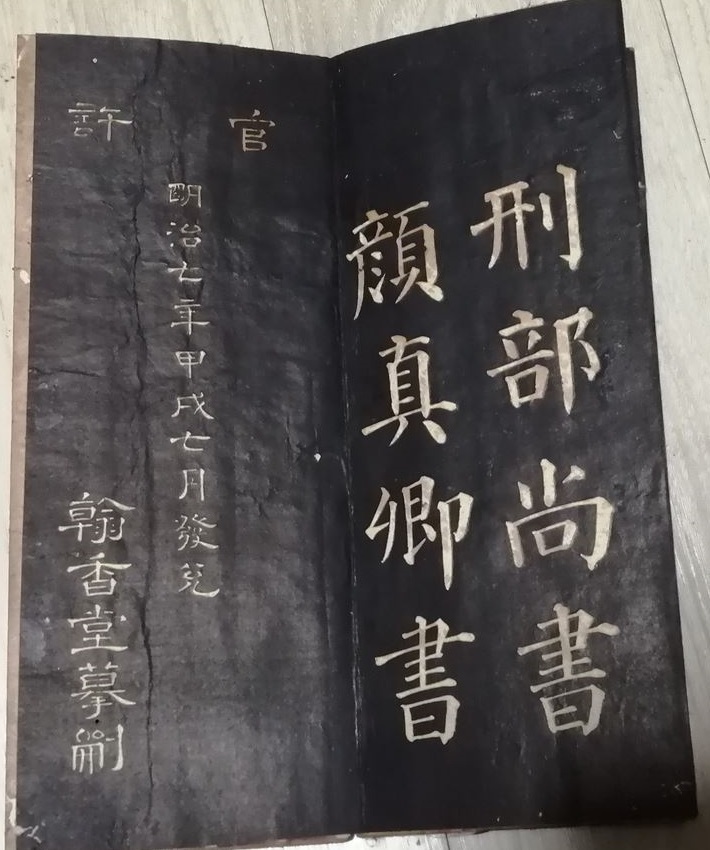 刑部尚書
顔真卿書
官許
明治七年甲戌七月發兌
翰香堂摹刪